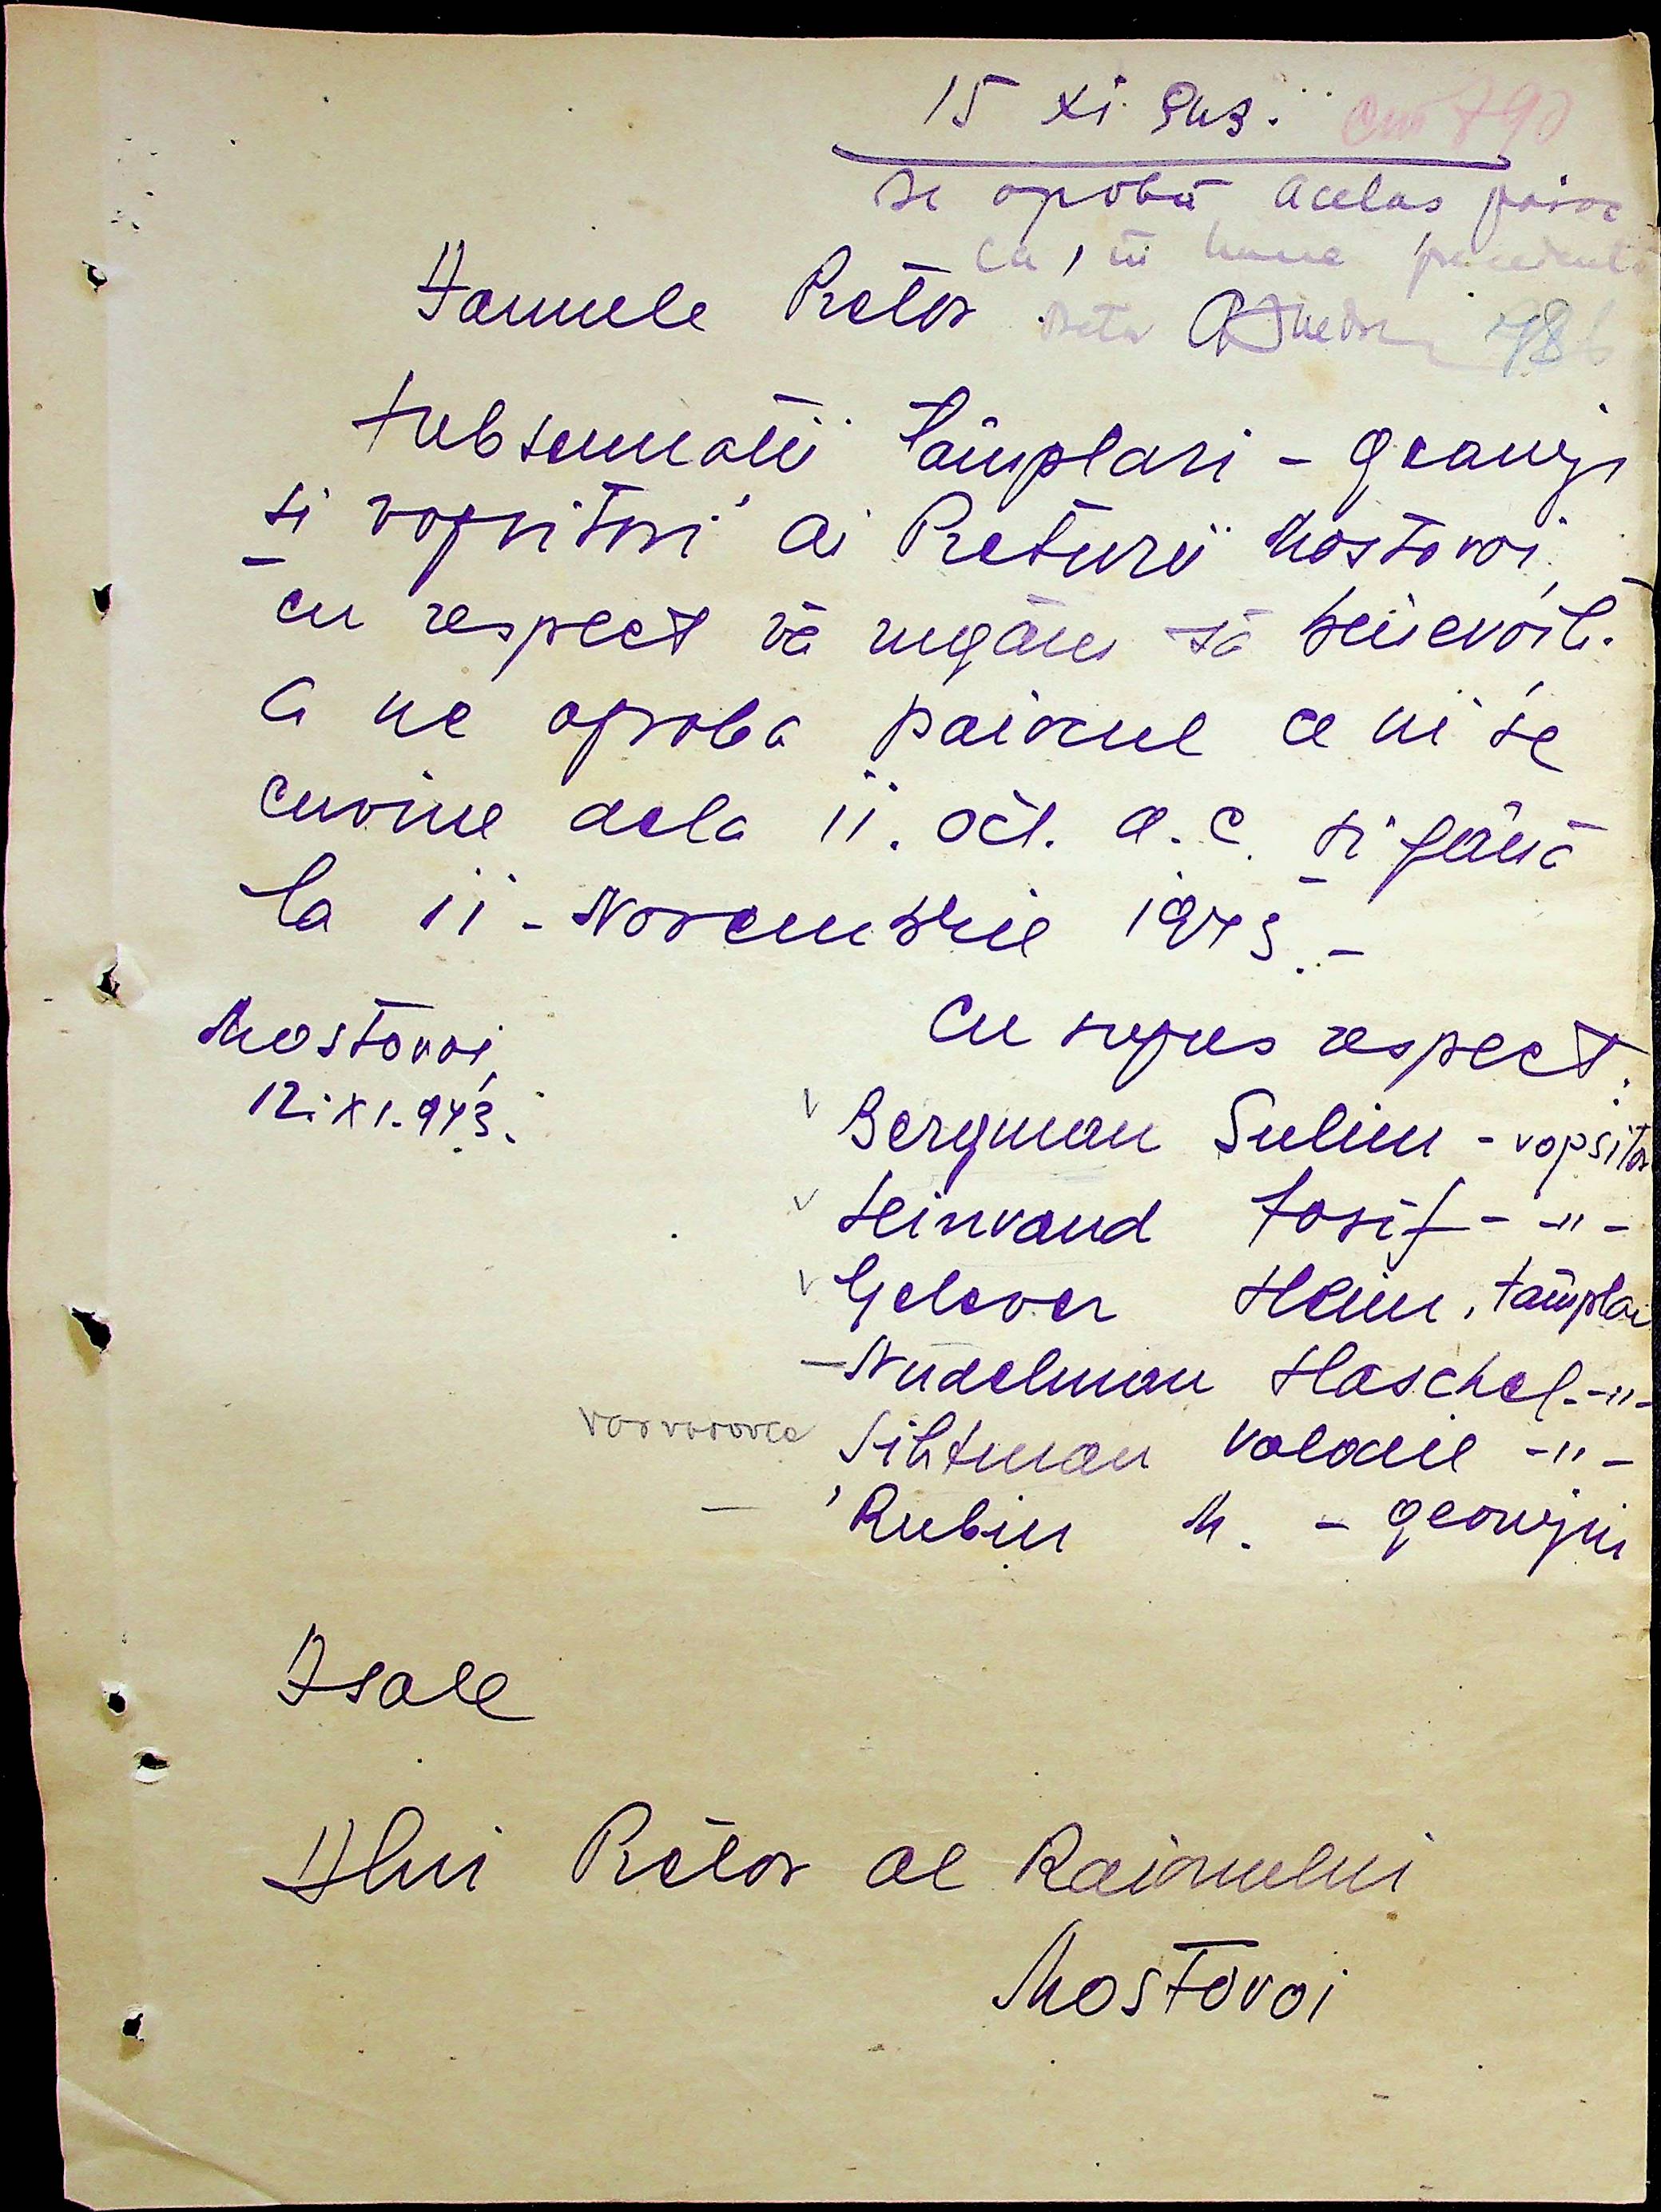 15 XI 943.
se aprobă acelas paioc
ca in luna precedentă
Domnule Pretor
786
Subsemnatii tâmplari - geamgi
si vopsitori ai Preturii Mostovoi,
cu respect vă rugăm să binevoiti.
a ne aproba paiocul ce ni se
cuvine dela 11. Oct. a. c. si până
la 11 - Novembrie 1943. -
Mostovoi,
12. XI. 943.
Cu supus respect:
Bergman Sulim - vopsitor
Leinvand Iosif - -"-
Gelever Heim, tâmplar
Nudelman Haschel -"-
Varvarovca
Sihtman Valodie -"-
Rubin M. - geamgiu
D sale
Dlui Pretor al Raionului
Mostovoi